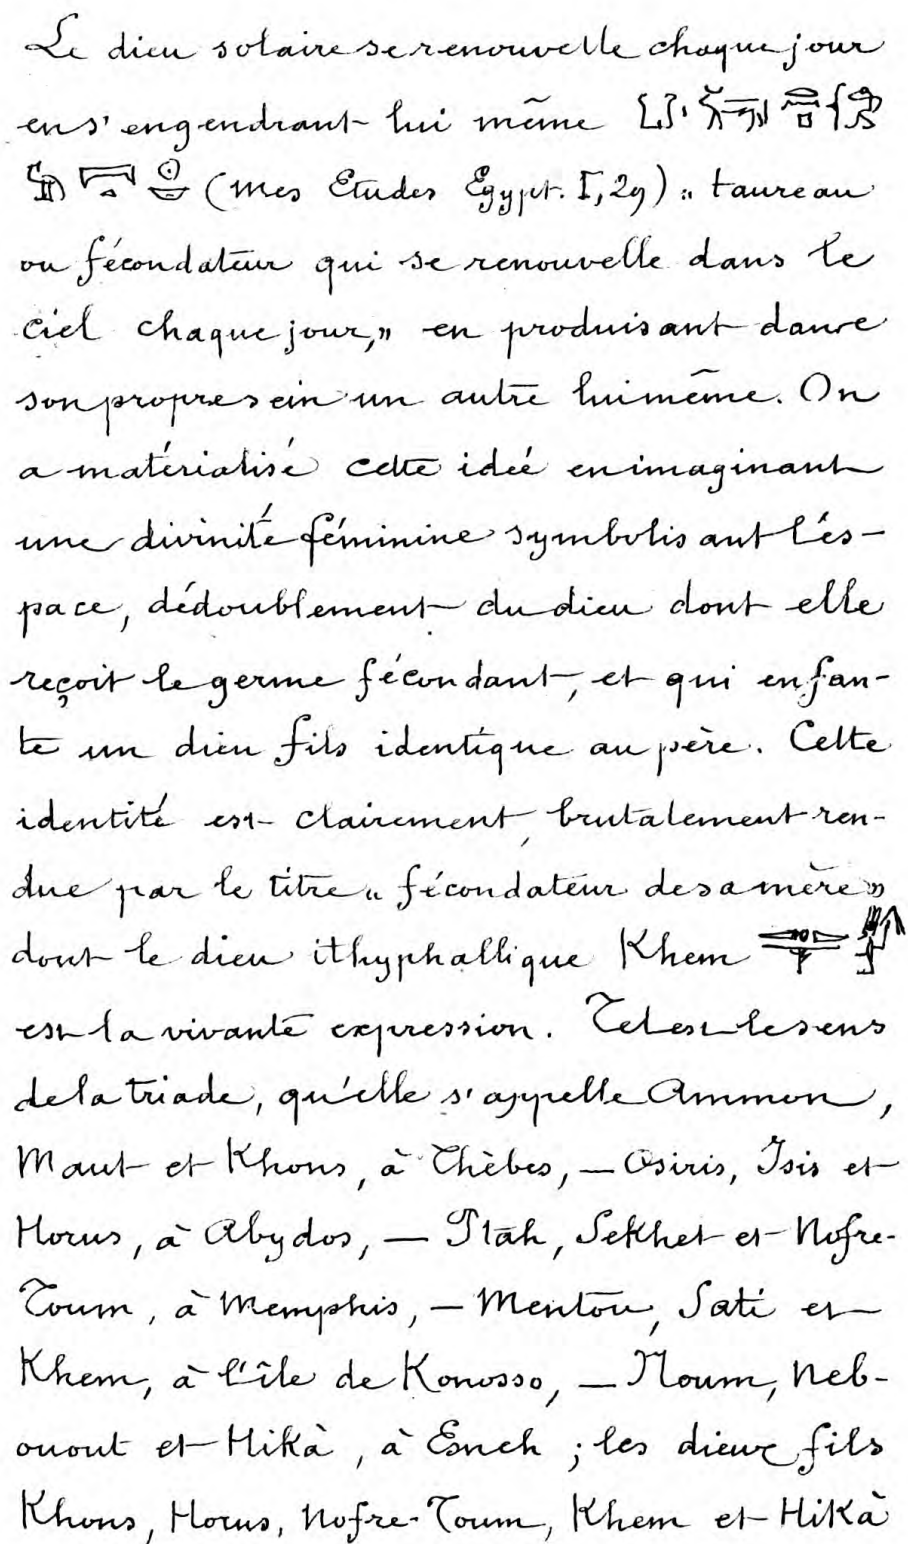 Le dieu solaire se renouvelle chaque jour
en s'engendrant lui même
(mes Etudes Egypt. I, 29) " taureau
ou fécondateur qui se renouvelle dans le
ciel chaque jour," en produisant dans
son propre sein un autre lui même. On
a matérialisé cette idée en imaginant
une divinité féminine symbolisant l'es-
pace, dédoublement du dieu dont elle
reçoit le germe fécondant, et qui enfan-
te un dieu fils identique au père. Cette
identité est clairement, brutalement ren-
due par le titre " fécondateur de sa mère "
dont le dieu ithyphallique Khem
est la vivante expression. Tel est le sens
de la triade, qu'elle s'appelle Ammon,
Maut et Khons, à Thèbes, — Osiris, Isis et
Horus, à Abydos, — Ptah, Sekhet et Nofre-
Toum, à Memphis, — Mentou, Sati et
Khem, à l'île de Konosso, — Noum, Neb-
ouout et Hikà, à Esneh ; les dieux fils
Khons, Horus, Nofre-Toum, Khem et Hikà